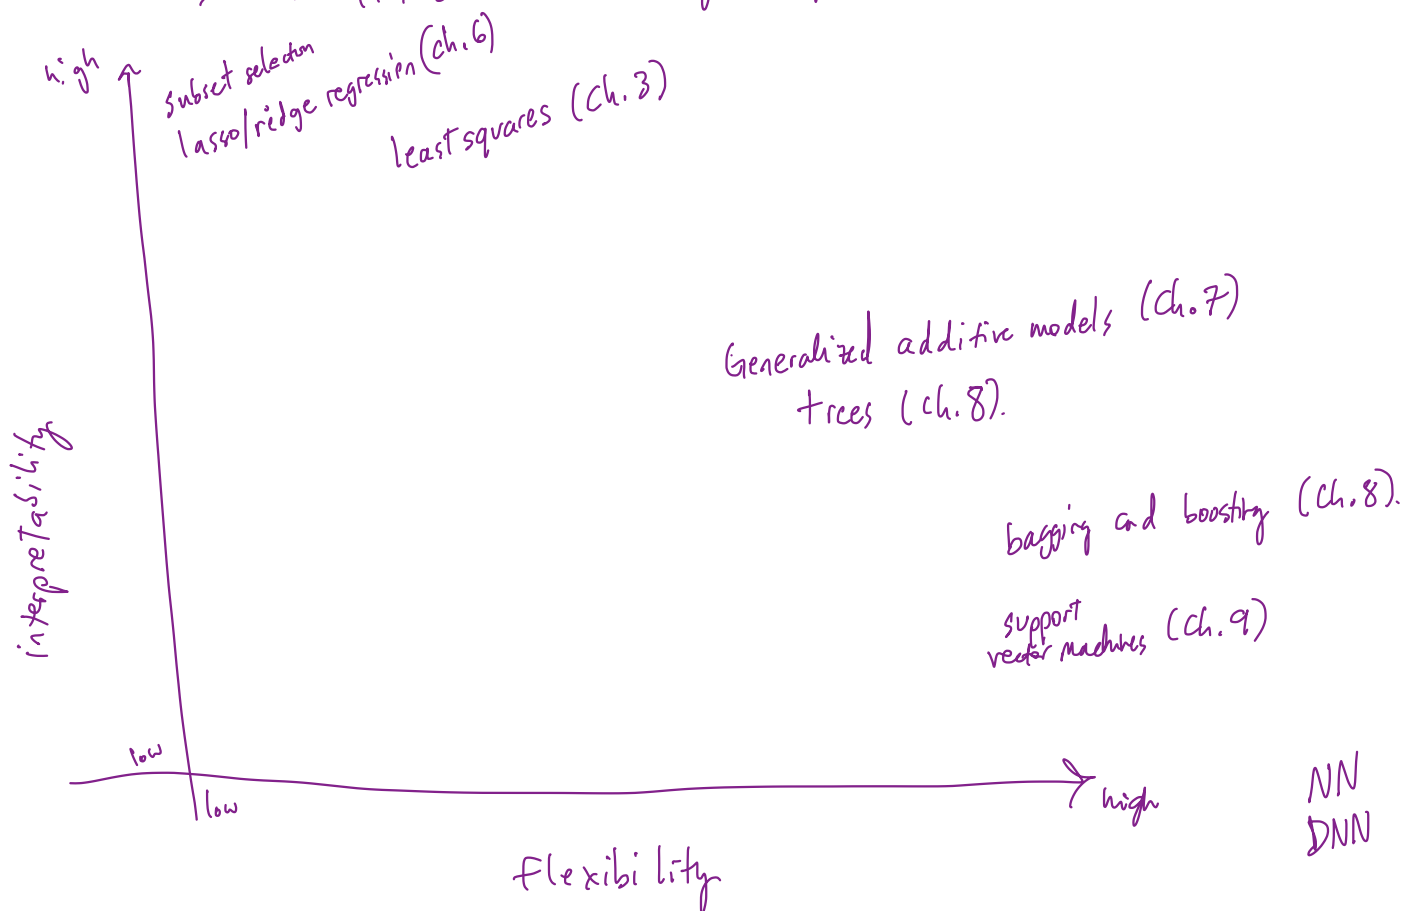 high
subset selection
lasso/ridge regression (ch. 6)
least squares (Ch. 3)
Generalized additive models (Ch. 7)
trees (ch. 8).
bagging and boosting (Ch. 8).
support
vector machines (Ch. 9)
interpretability
low
low
high
NN
DNN
flexibility